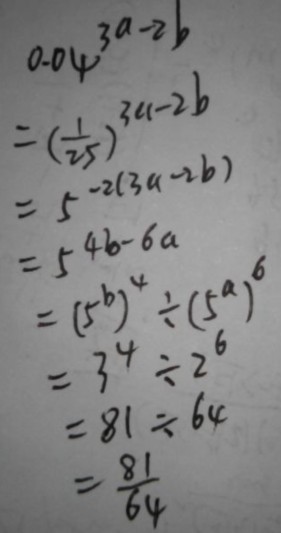 0.04^{3a-2b}
= (\frac{1}{25})^{3a-2b}
= 5^{-2(3a-2b)}
= 5^{4b-6a}
= (5^b)^4 ÷ (5^a)^6
= 3^4 ÷ 2^6
= 81 ÷ 64
= \frac{81}{64}